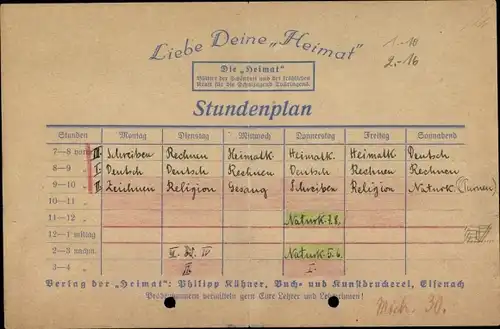 Liebe Deine „Heimat"
1.-10
2.-16
Die „Heimat"
Blätter der Schönheit und der fröhlichen
Kraft für die Schuljugend Thüringens.
Stundenplan
Stunden Montag Dienstag Mittwoch Donnerstag Freitag Sonnabend
7—8 vorm. II. Schreiben Rechnen Heimatk. Heimatk. Heimatk. Deutsch
8—9 „ I. Deutsch Deutsch Rechnen Deutsch Rechnen Rechnen
9—10 „ II. Zeichnen Religion Gesang Schreiben Religion Naturk. (Turnen)
10—11 „
11—12 „ Naturk. 7.8.
12—1 mittag
2—3 nachm. V. IV Naturk. 5.6.
3—4 „ I.
Verlag der „Heimat": Philipp Kühner, Buch- und Kunstdruckerei, Eisenach
Probenummern vermitteln gern Eure Lehrer und Lehrerinnen!
Mich. 30.